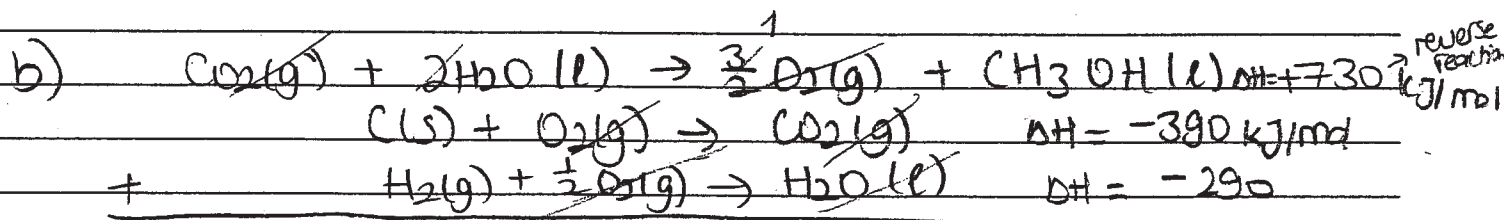 b) CO2(g) + 2H2O (l) → 3/2 O2(g) + CH3OH(l) ΔH=+730 kJ/mol → reverse reaction
1
C(s) + O2(g) → CO2(g) ΔH = -390 kJ/mol
+ H2(g) + 1/2 O2(g) → H2O(l) ΔH = -290